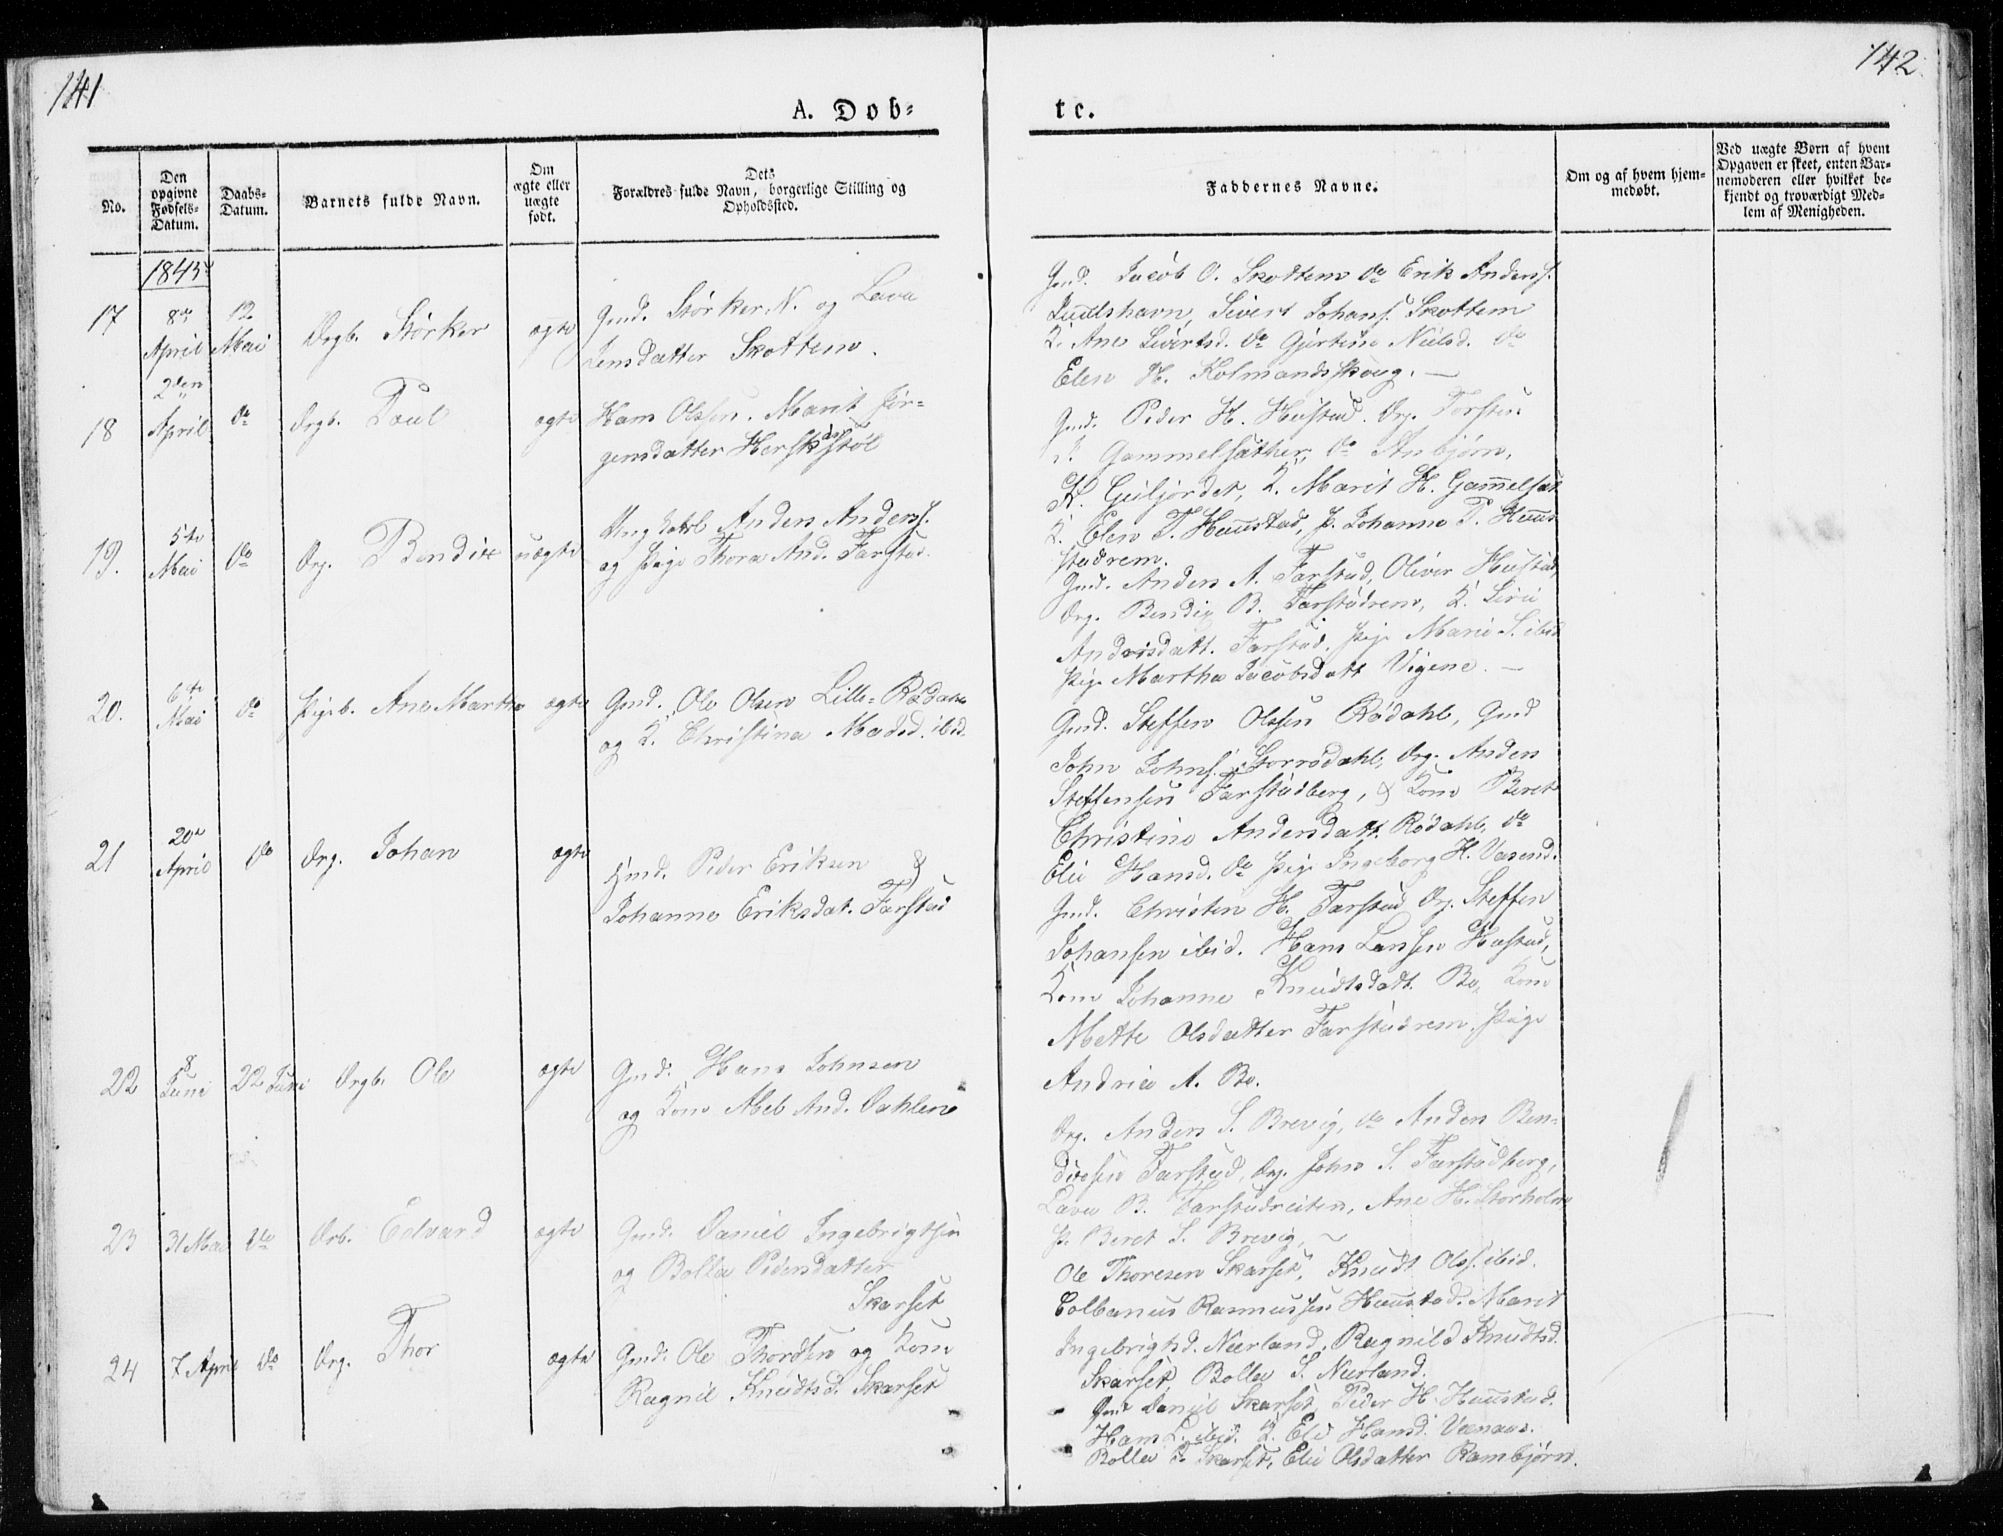 141
142
A. Døb-
te.
No.
Den opgivne Fødsels-Datum.
Daabs-Datum.
Barnets fulde Navn.
Om ægte eller uægte født.
Dets Forældres fulde Navn, borgerlige Stilling og Opholdssted.
Faddernes Navne.
Om og af hvem hjem-medøbt.
Ved uægte Børn af hvem
Opgaven er skeet, enten Bar-
nemoderen eller hvilket be-
kjendt og troværdigt Med-
lem af Menigheden.
1843
17
8de April
12 Mai
Drgb. Størker
ægte
Gmd. Størker N. og Lava
Jensdatter Skottem.
Gmd. Jacob O. Skottem do Erik Anders.
Sivert Johans. Skottem
K. Ane Sivertsd. do Gjertine Nielsd. do
Elen H. Kolmandsskoug. —
18
2den April
do
Drgb. Poul
ægte
Hans Olssen. Marit Jør-
gensdatter
Gmd. Peder H. Hustad. Drg. Torsten
Gammelsæther, do Anbjørn,
K. Geiljordet, K. Marit H. Gammelsæt
K. Elen T. Huustad, P. Johanne P. Huus
stadrem.
19.
5te Mai
do
Drg. Bendix
uægte
Ungkarl Anders Anderss.
og Pige Thora And. Farstad.
Gmd. Anders A. Farstad, Oliver Hustad,
Drg. Bendix B. Farstadrem, K. Siri
Andersdatt. Farstad. Pige Marie S. ibid
Pige Martha Jacobsdatt Vigene. —
20.
6te Mai
do
Pigeb. Ane Martha
ægte
Gmd. Ole Olsen Lille-Rødahl
og K. Christina Madsd. ibid.
Gmd. Steffen Olssen Rødahl, Gmd
John Johns. Storrødahl, Drg. Anders
Steffensen Farstadberg, & Kone Beret
Christine Andersdatt. Rødahl, do
Eli Hansd. do Pige Ingeborg H. Vasend.
21
20de April
do
Drg. Johan
ægte
Hmd. Peder Eriksen &
Johanne Eriksdat. Farstad
Gmd. Christen H. Farstad Drg. Steffen
Johansen ibid. Hans Larssen Hustad,
Kone Johanne Knudtsdatt. Bo, Kone
Mette Olsdatter Farstadrem, Pige
Andria A. Bo.
22
8 Juni
22 Juni
Drgb. Ole
ægte
Gmd. Hans Johnsen
og Kone Abel And. Dahlen
Drg. Anders S. Brevig, do Anders Ben-
dixsen Farstad, Drg. John S. Farstadberg,
Lava B. Farstadreiten, Ane H. Storholm
P. Beret S. Brevig, ~
23
31 Mai
do
Drb. Edvard
ægte
Gmd. Daniel Ingebrigtsen
og Bolla Pedersdatter
Skarset
Ole Thoresen Skarset, Knudt Olss. ibid.
Colbanus Rasmussen Huustad. Marit
Ingebrigtsd. Nærland, Ragnild Knudtsd.
Skarset, Bolla S. Nærland.
24
7 April
do
Drg. Thor
ægte
Gmd. Ole Thordsen og Kone
Ragnil Knudtsd. Skarset
Gmd Daniel Skarset, Peder H. Huustad.
Hans L. ibid. K. Eli Hansd. Vænaas.
Bolla P. Skarset, Eli Olsdatter Rambjørn.